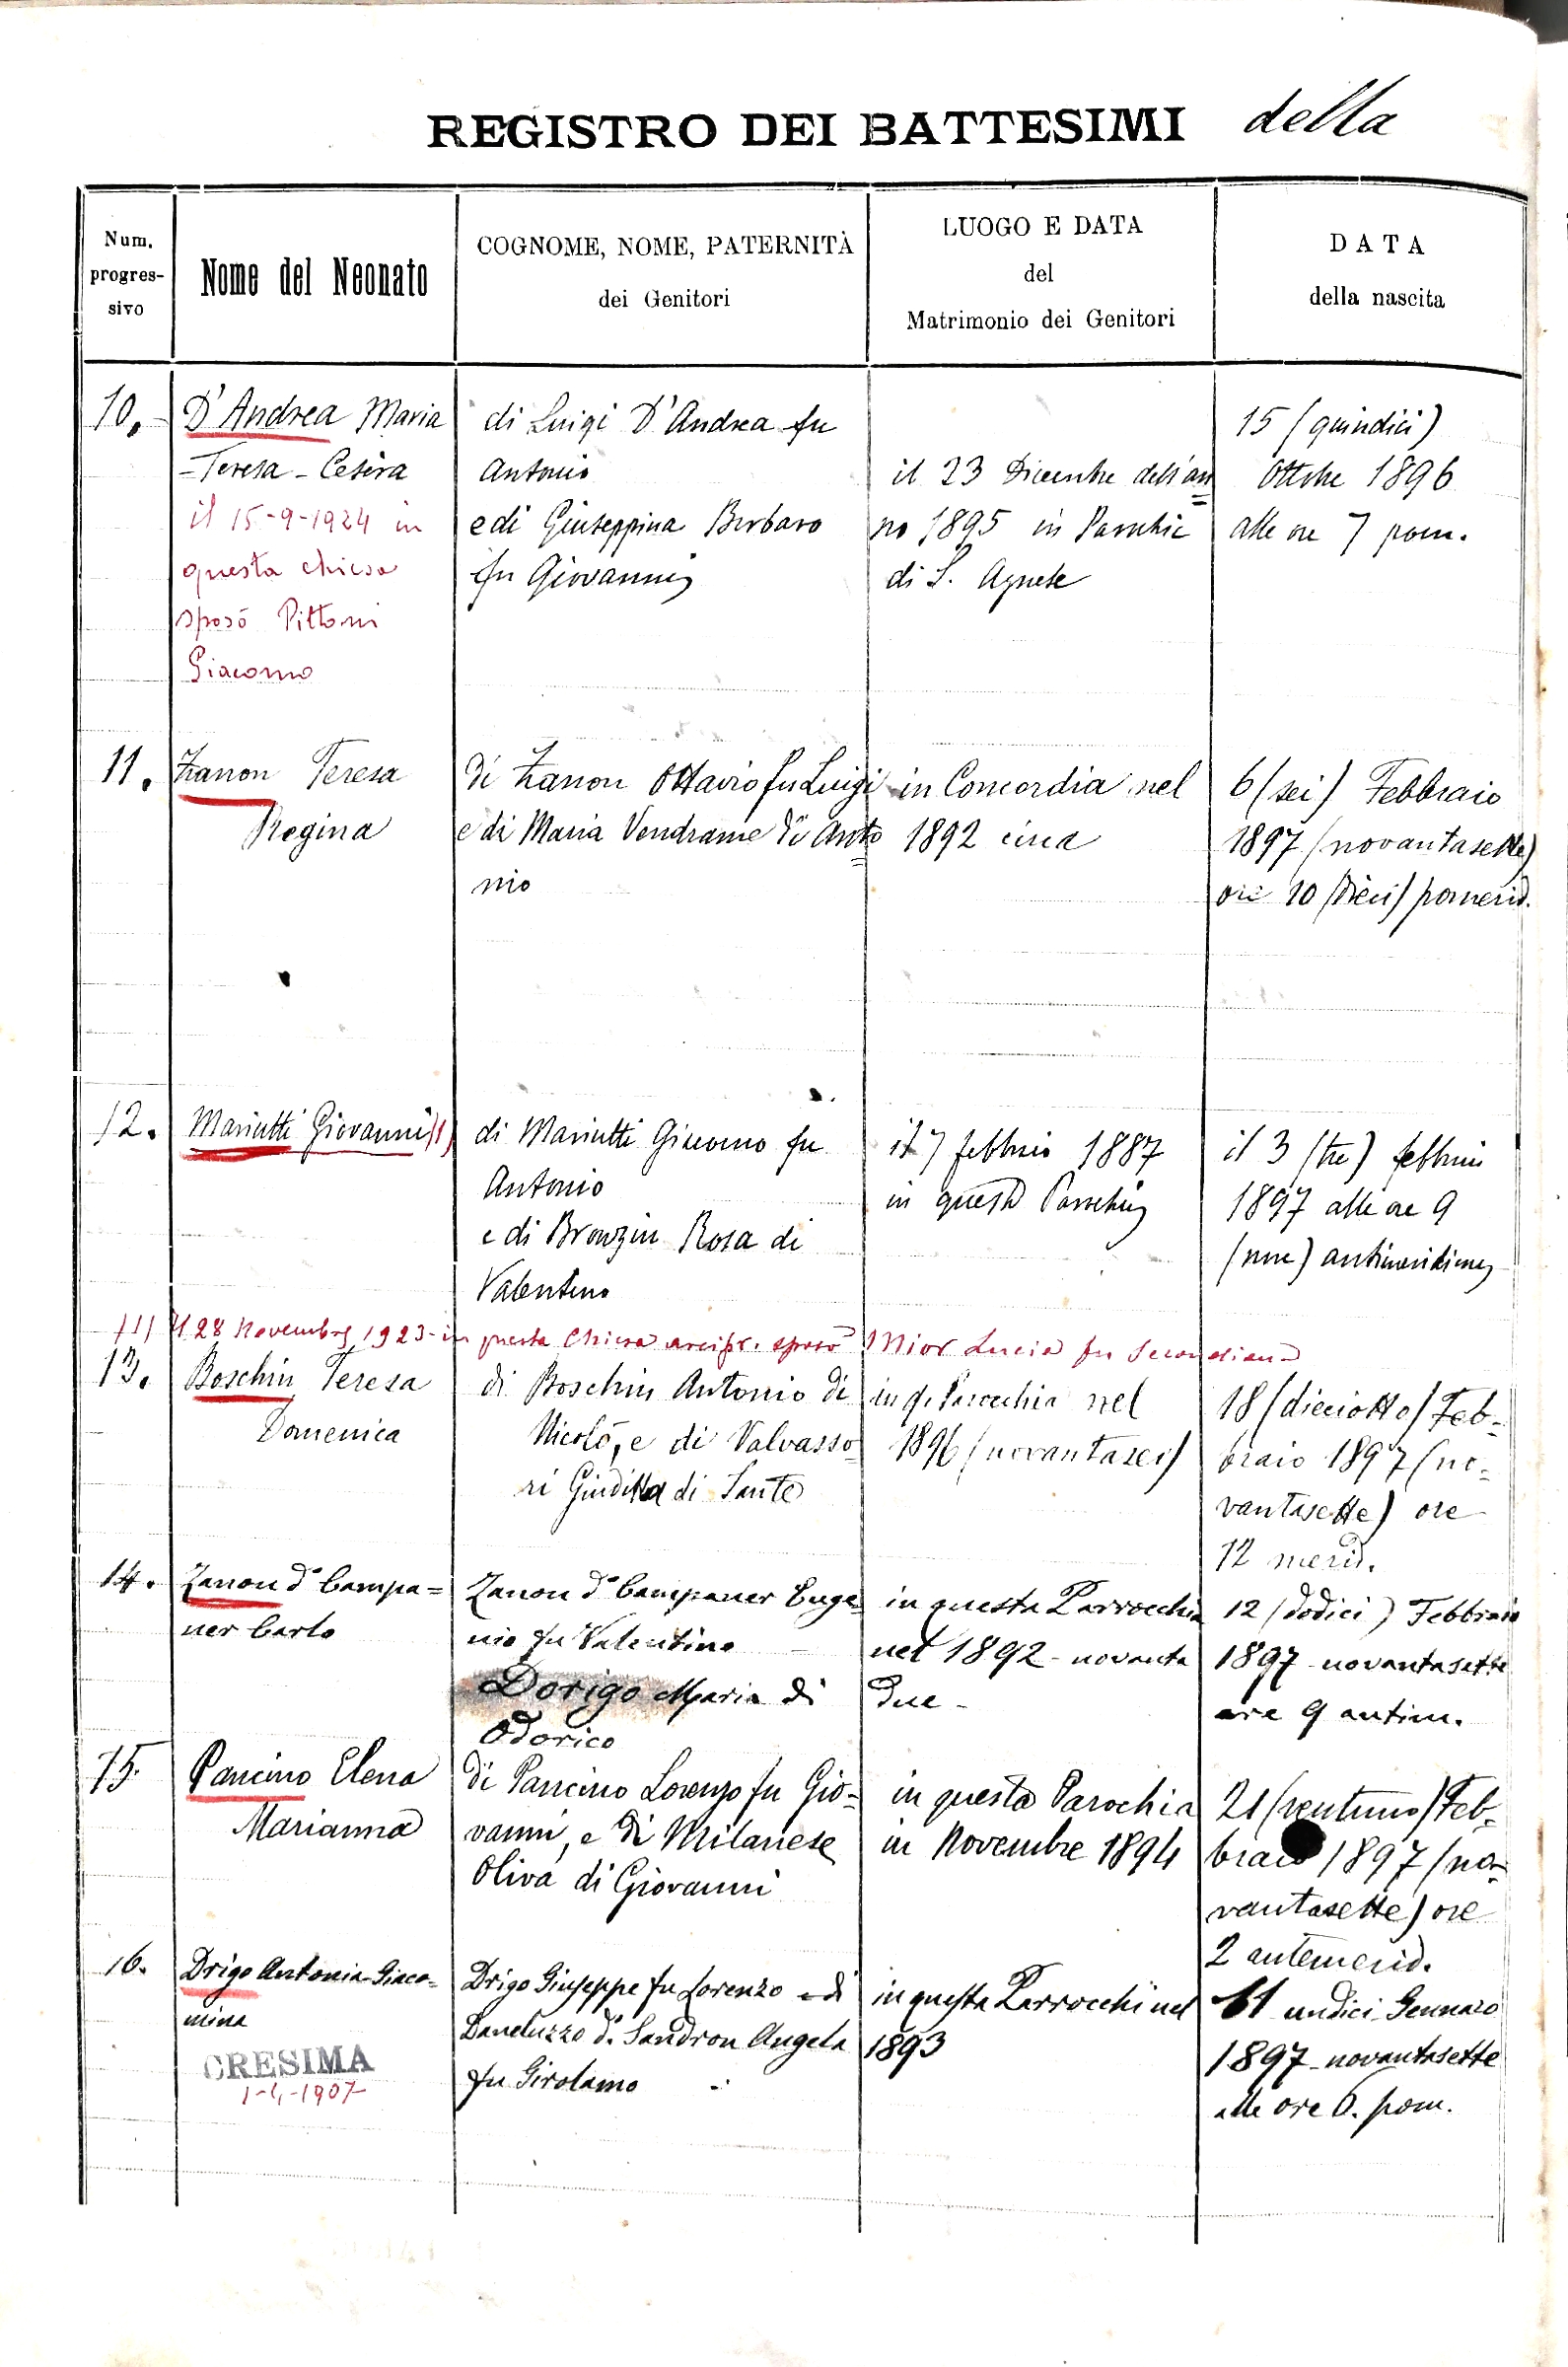 REGISTRO DEI BATTESIMI della
Num.
progres-
sivo
Nome del Neonato
COGNOME, NOME, PATERNITÀ
dei Genitori
LUOGO E DATA
del
Matrimonio dei Genitori
DATA
della nascita
10.
D'Andrea Maria
-Teresa-Cesira
il 15-9-1924 in
questa chiesa
sposò Pittoni
Giacomo
di Luigi D'Andrea fu
Antonio
e di Giuseppina Barbaro
fu Giovanni
il 23 Dicembre dell'an
no 1895 in Parochia
di S. Agnese
15 (quindici)
Ottobre 1896
alle ore 7 pom.
11.
Zanon Teresa
Regina
di Zanon Ottavio fu Luigi
e di Maria Vendrame di Anto
nio
in Concordia nel
1892 circa
6 (sei) Febbraio
1897 (novantasette)
ore 10 (dieci) pomerid.
12.
Mariutti Giovanni (1)
di Mariutti Giacomo fu
Antonio
e di Bronzin Rosa di
Valentino
il 7 febbraio 1887
in questa Parochia
il 3 (tre) febbraio
1897 alle ore 9
(nove) antimeridiane
(1) il 28 Novembre 1923 in questa Chiesa arcipr. sposò Mior Lucia fu Secondiano
13.
Boschin Teresa
Domenica
di Boschin Antonio di
Nicolò, e di Valvasso
ri Giuditta di Sante
in q. Parocchia nel
1896 (novantasei)
18 (dieciotto) Feb-
braio 1897 (no-
vantasette) ore
12 merid.
14.
Zanon d° Campa=
ner Carlo
Zanon d° Campaner Euge
nio fu Valentino
Dorigo Maria di
Odorico
in questa Parrocchia
nel 1892 - novanta
due -
12 (dodici) Febbraio
1897 novantasette
ore 9 antim.
15.
Pancino Elena
Marianna
di Pancino Lorenzo fu Gio-
vanni, e di Milanese
Oliva di Giovanni
in questa Parochia
in Novembre 1894
21 (ventuno) Feb-
braio 1897 (no-
vantasette) ore
2 antemerid.
16.
Drigo Antonia-Giaco-
mina
CRESIMA
1-4-1907
Drigo Giuseppe fu Lorenzo e di
Daneluzzo d° Sandron Angela
fu Girolamo
in questa Parrocchi nel
1893
11 undici Gennaro
1897 novantasette
alle ore 6. pom.